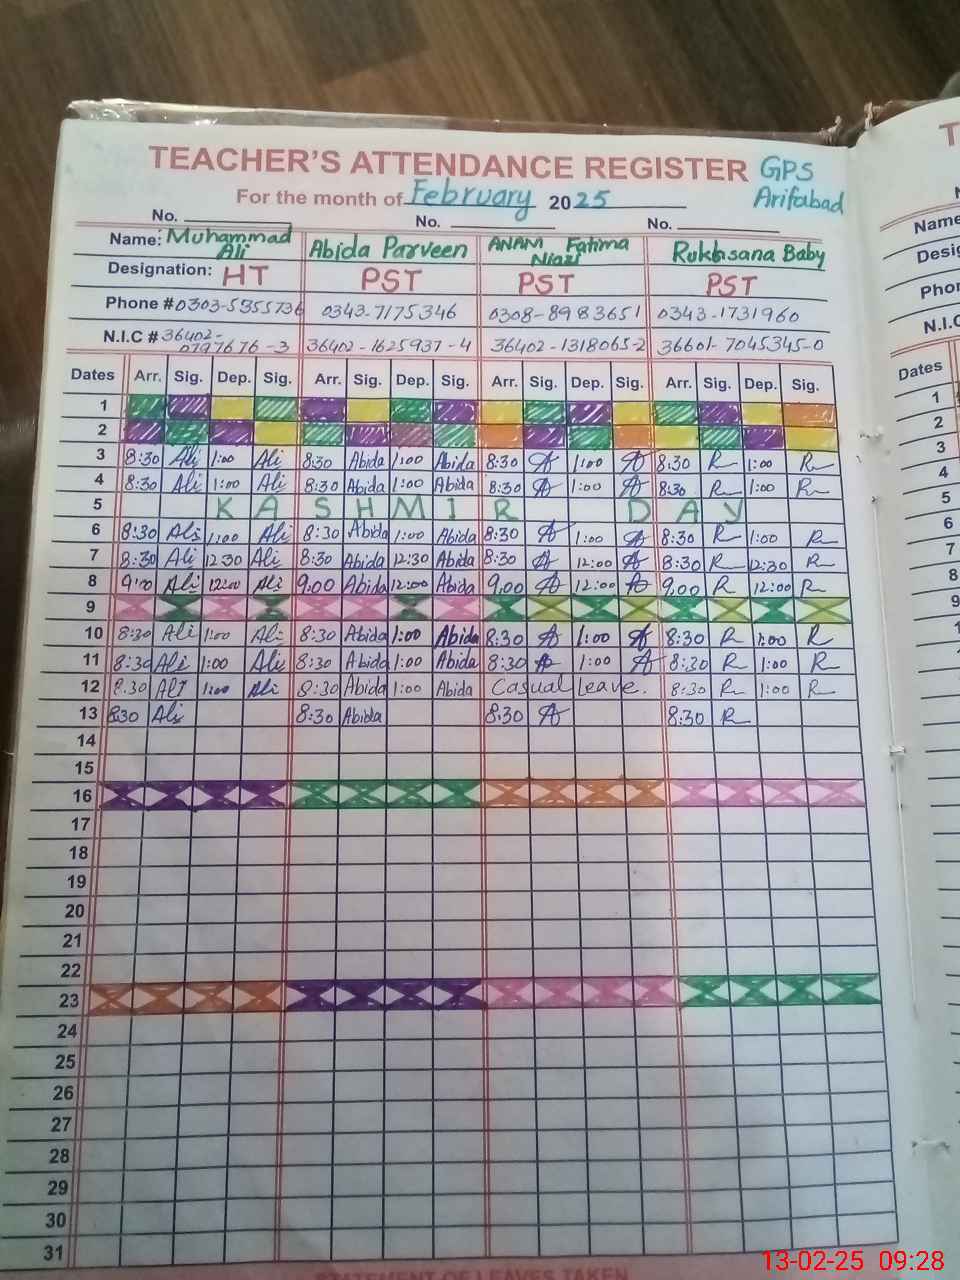 TEACHER'S ATTENDANCE REGISTER GPS
For the month of February 2025 Arifabad
No. No. No.
Name: Muhammad Ali Abida Parveen ANAM Fatima Niazi Rukhsana Baby
Designation: HT PST PST PST
Phone # 0303-5355736 0343-7175346 0308-8983651 0343-1731960
N.I.C # 36402-0797676-3 36402-1625937-4 36402-1318065-2 36601-7045345-0
Dates Arr. Sig. Dep. Sig. Arr. Sig. Dep. Sig. Arr. Sig. Dep. Sig. Arr. Sig. Dep. Sig.
1
2
3 8:30 Ali 1:00 Ali 8:30 Abida 1:00 Abida 8:30 A 1:00 A 8:30 R 1:00 R
4 8:30 Ali 1:00 Ali 8:30 Abida 1:00 Abida 8:30 A 1:00 A 8:30 R 1:00 R
5 KASHMIR DAY
6 8:30 Ali 1:00 Ali 8:30 Abida 1:00 Abida 8:30 A 1:00 A 8:30 R 1:00 R
7 8:30 Ali 12:30 Ali 8:30 Abida 12:30 Abida 8:30 A 12:00 A 8:30 R 12:30 R
8 9:00 Ali 12:00 Ali 9:00 Abida 12:00 Abida 9:00 A 12:00 A 9:00 R 12:00 R
9
10 8:30 Ali 1:00 Ali 8:30 Abida 1:00 Abida 8:30 A 1:00 A 8:30 R 1:00 R
11 8:30 Ali 1:00 Ali 8:30 Abida 1:00 Abida 8:30 A 1:00 A 8:30 R 1:00 R
12 8:30 Ali 1:00 Ali 8:30 Abida 1:00 Abida Casual Leave. 8:30 R 1:00 R
13 8:30 Ali 8:30 Abida 8:30 A 8:30 R
14
15
16
17
18
19
20
21
22
23
24
25
26
27
28
29
30
31
STATEMENT OF LEAVES TAKEN
T
Name
Desig
Phon
N.I.C
Dates
1
2
3
4
5
6
7
8
9
10
11
12
13
14
15
16
17
18
19
20
21
22
23
24
25
26
27
28
29
30
31
13-02-25 09:28